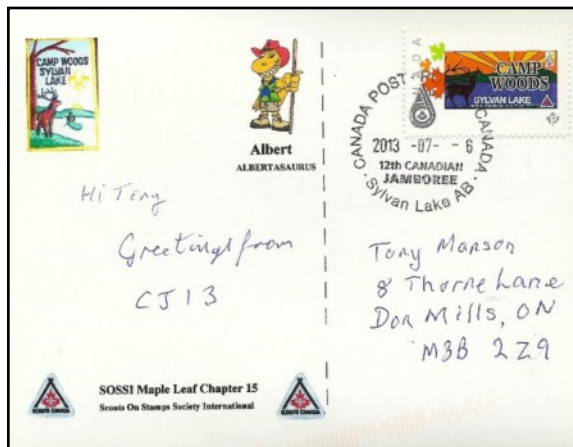 CAMP WOODS
SYLVAN
LAKE
Albert
ALBERTASAURUS
CANADA
CAMP
WOODS
SYLVAN LAKE
P
CANADA POST
CANADA
2013 -07- -6
12th CANADIAN
JAMBOREE
Sylvan Lake AB
Hi Tony
Greetings from
CJ13
Tony Manson
8 Thorne Lane
Don Mills, ON
M3B 2Z9
SCOUTS CANADA
SOSSI Maple Leaf Chapter 15
Scouts On Stamps Society International
SCOUTS CANADA